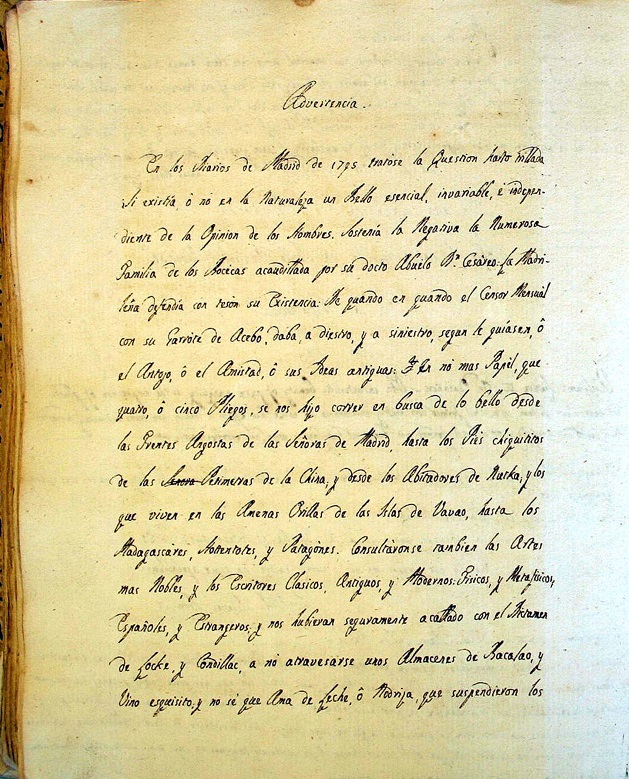 Advertencia.
En los Diarios de Madrid de 1795 tratóse la Question harto trillada
Si existía, ó no en la Naturaleza un Bello esencial, invariable, é indepen-
diente de la Opinion de los Hombres. Sostenía la Negativa la Numerosa
Familia de los Bocécas acaudillada por su docto Abuelo Dn. Cesáreo: La Madri-
leña defendía con tesón su Existencia: De quando en quando el Censor Mensual
con su Garrote de Acebo, daba, a diestro, y a siniestro, segun le guíasen, ó
el Antojo, ó el Amistad, ó sus Ideas antiguas: En no mas Papél, que
quatro, ó cinco Pliegos, se nos hizo correr en busca de lo bello desde
las Frentes Angostas de las Señoras de Madrid, hasta los Piés chiquititos
de las Señora Perimetras de la China, y desde los Abitadores de Nutka, y los
que viven en las Amenas Orillas de las Islas de Vavao, hasta los
Madagascáres, Hotentotes, y Patagónes. Consultáronse tambien las Artes
mas Nobles, y los Escritores Clasicos, Antiguos y Modernos: Fisicos, y Metafisicos,
Españoles, y Estrangeros: y nos hubieran seguramente acallado con el Dictamen
de Locke, y Condillac, a nó atravesarse unos Almacenes de Bacalao, y
Vino esquisito, y no sé que Ama de Leche, ó Nodriza, que suspendieron los